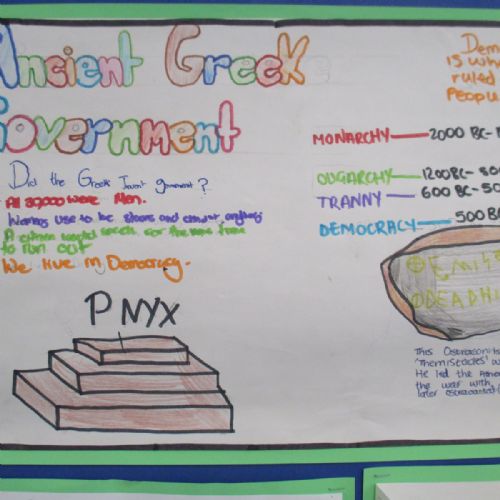 Ancient Greek
Government
Did the Greek Invent government?
All 30,000 were Men.
Womens use to be slaves and
A citizen would speak for the time
to run out
We live in Democracy.
PNYX
Dem
is wh
ruled
People
MONARCHY 2000 BC-
OLIGARCHY 1200BC-
TRANNY 600 BC- 50
DEMOCRACY 500 B
This Ostracon
'Themistocles' w
He led the
the war with
later